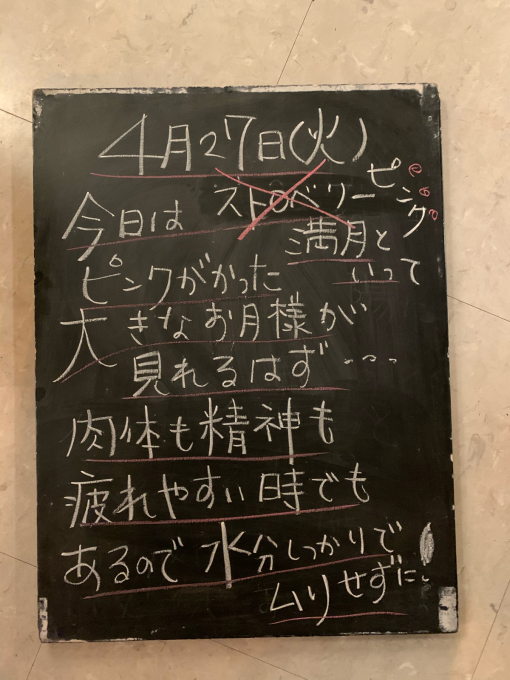 4月27日(火)
今日は ストロベリーピンク
満月といって
ピンクがかった
大きなお月様が
見れるはず----
肉体も精神も
疲れやすい時でも
あるので水分しっかりで
ムリせずに。